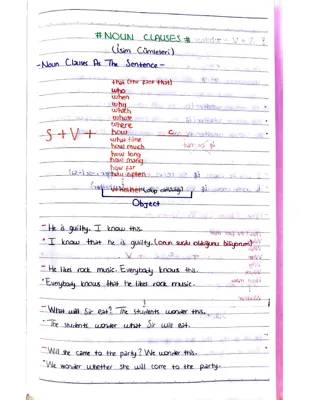 # NOUN CLAUSES #
(İsim Cümleleri)
-Noun Clauses As The Sentence-
that (the fact that)
who
when
why
which
whose
where
S+V+ how
what time
how much
how long
how many
how far
how often
whether (olup olmadığı)
Object
- He is guilty. I know this.
* I know that he is guilty. (onun suçlu olduğunu biliyorum)
- He likes rock music. Everybody knows this.
* Everybody knows that he likes rock music.
- What will Sir eat? The students wonder this.
* The students wonder what Sir will eat.
- Will she came to the party? We wonder this.
* We wonder whether she will come to the party.